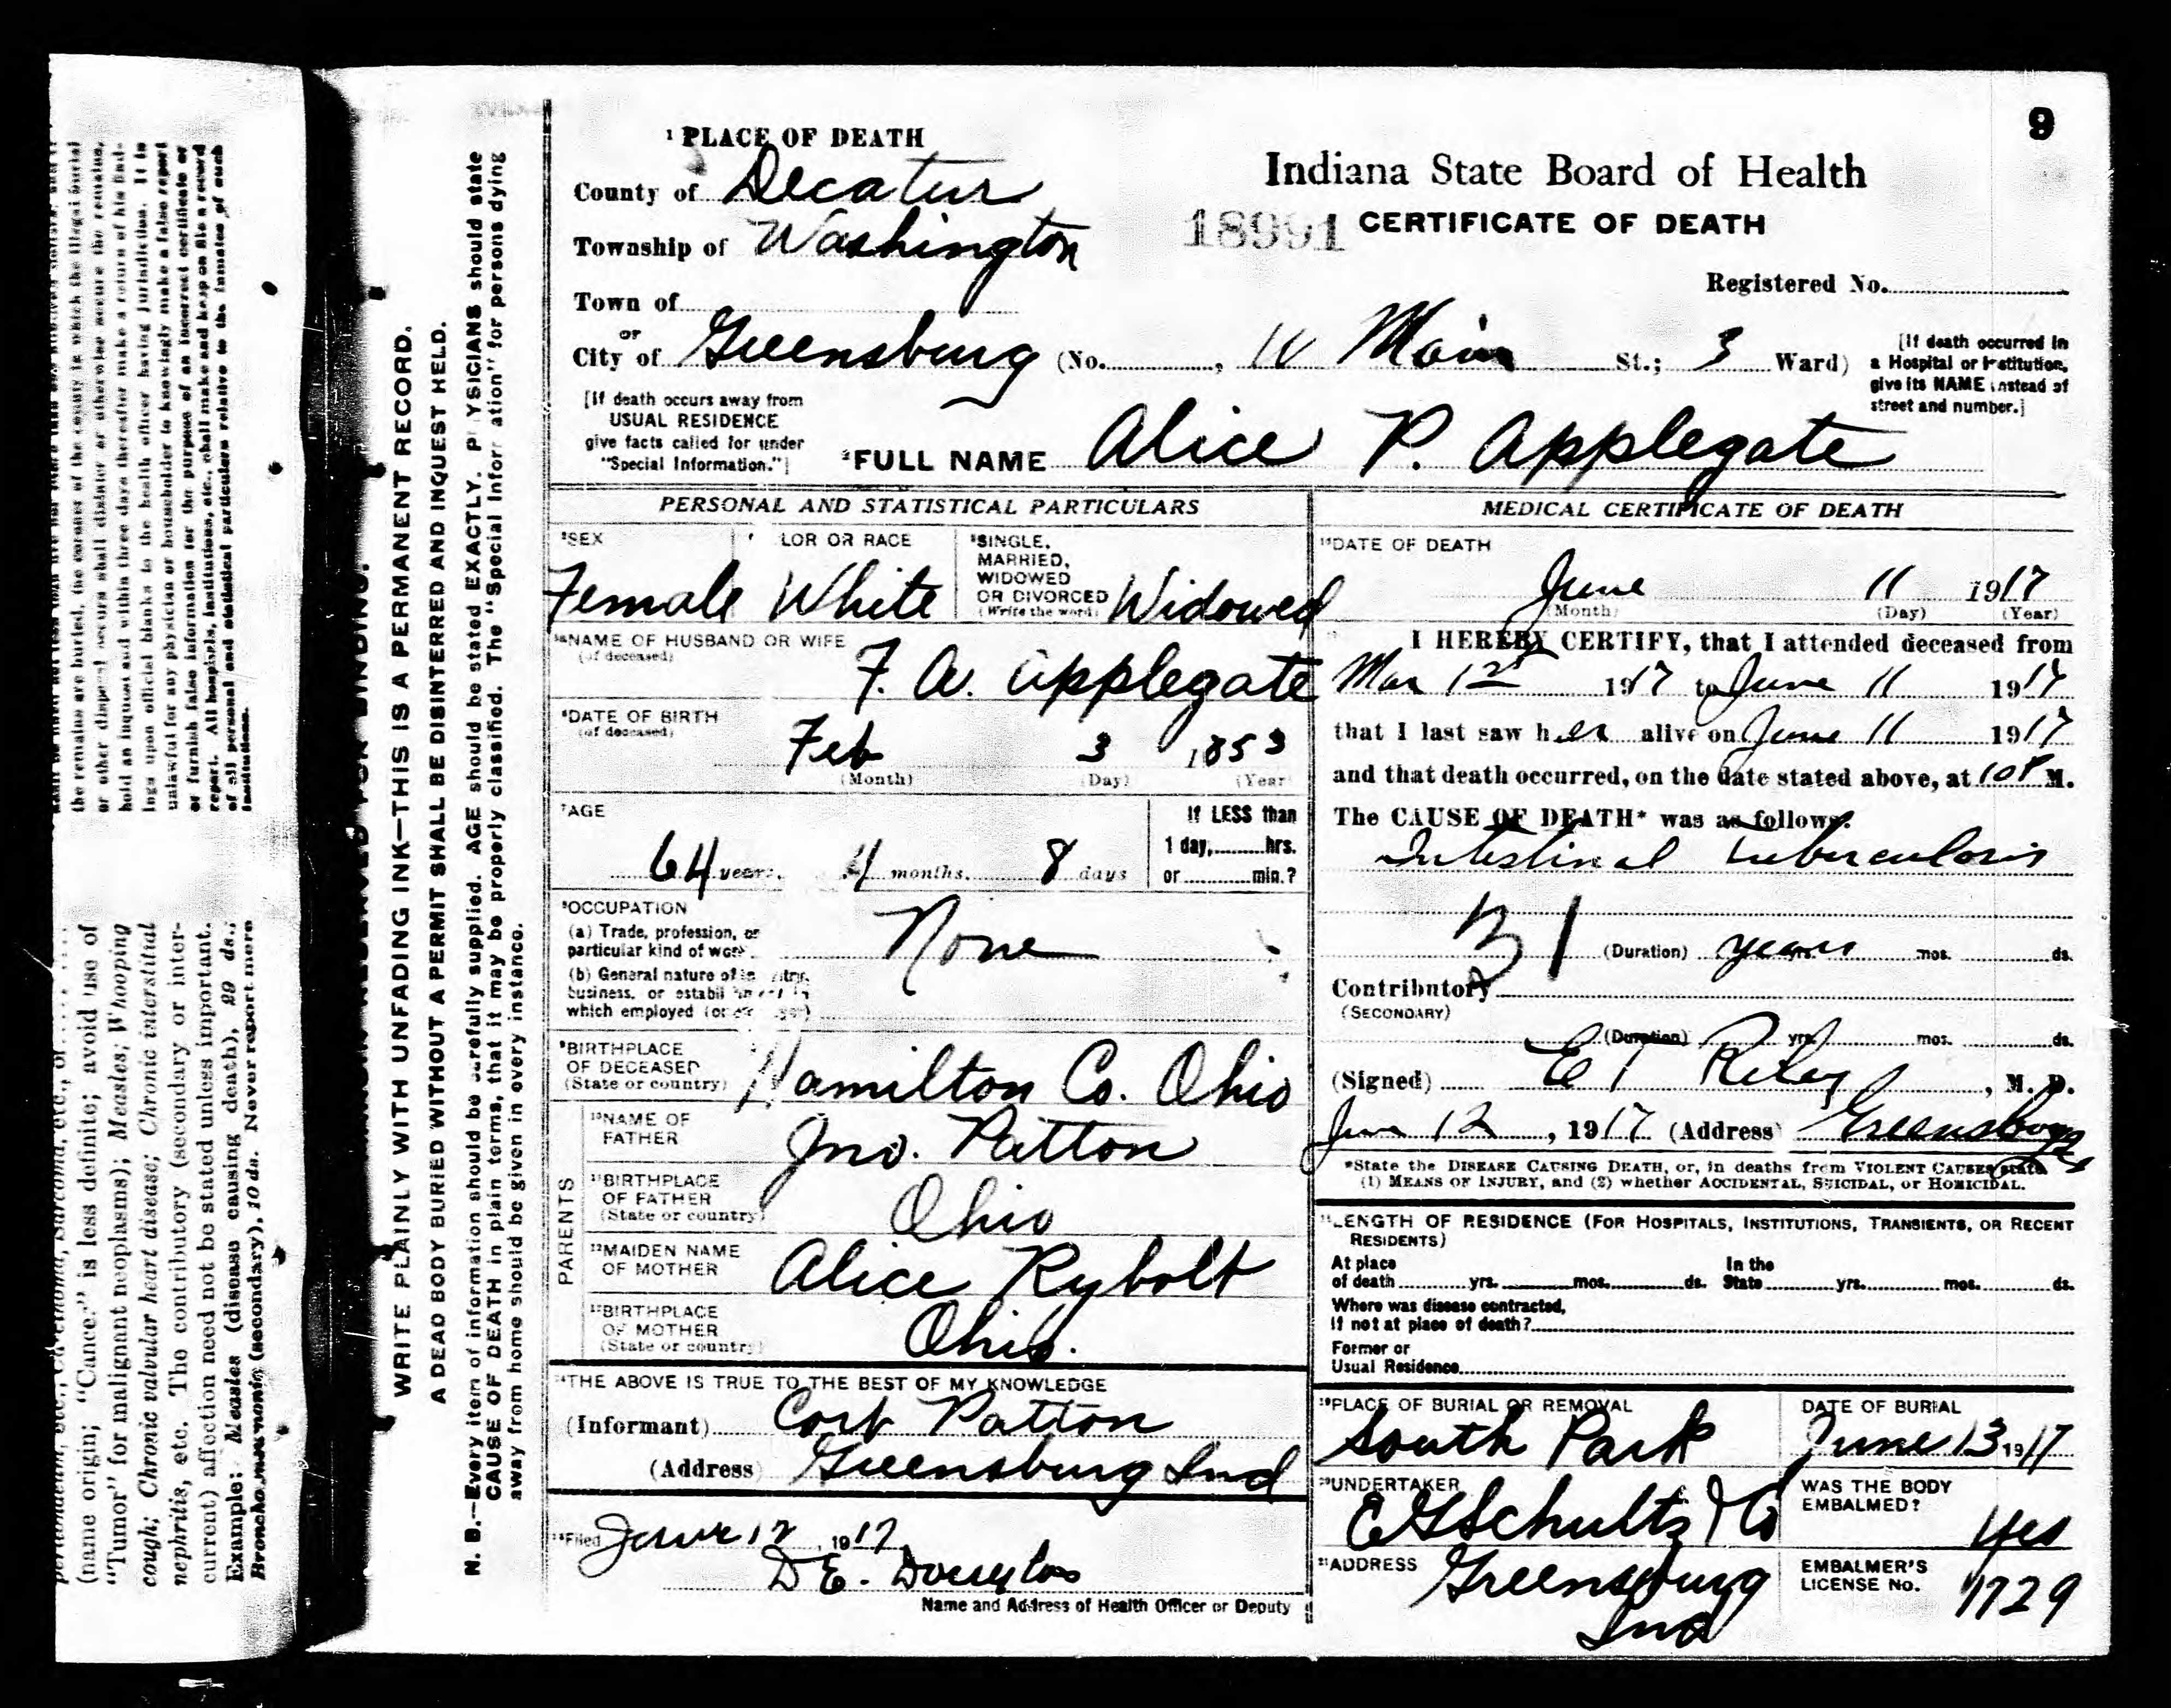 9
1 PLACE OF DEATH
County of Decatur
Township of Washington
Town of
or
City of Greensburg (No. , W Main St.; 3 Ward)
Indiana State Board of Health
18991 CERTIFICATE OF DEATH
Registered No.
[If death occurred in
a Hospital or Institution,
give its NAME instead of
street and number.]
[If death occurs away from
USUAL RESIDENCE
give facts called for under
"Special Information."]
2 FULL NAME Alice P. Applegate
PERSONAL AND STATISTICAL PARTICULARS
3 SEX
Female
LOR OR RACE
White
5 SINGLE,
MARRIED,
WIDOWED
OR DIVORCED
(Write the word)
Widowed
NAME OF HUSBAND OR WIFE
(of deceased)
F. A. Applegate
6 DATE OF BIRTH
(of deceased)
Feb 3 1853
(Month) (Day) (Year)
7 AGE
64 years, 4 months, 8 days
If LESS than
1 day, hrs.
or min.?
8 OCCUPATION
(a) Trade, profession, or
particular kind of work
None
(b) General nature of
business, or
which employed
9 BIRTHPLACE
OF DECEASED
(State or country)
Hamilton Co. Ohio
PARENTS
10 NAME OF
FATHER
Jno. Patton
11 BIRTHPLACE
OF FATHER
(State or country)
Ohio
12 MAIDEN NAME
OF MOTHER
Alice Rybolt
13 BIRTHPLACE
OF MOTHER
(State or country)
Ohio.
14 THE ABOVE IS TRUE TO THE BEST OF MY KNOWLEDGE
(Informant) Cort Patton
(Address) Greensburg Ind
15 Filed June 12, 1917
D E. Douglas
Name and Address of Health Officer or Deputy
MEDICAL CERTIFICATE OF DEATH
16 DATE OF DEATH
June 11 1917
(Month) (Day) (Year)
I HEREBY CERTIFY, that I attended deceased from
Mar 1st 1917 to June 11 1917
that I last saw her alive on June 11 1917
and that death occurred, on the date stated above, at 10 P M.
The CAUSE OF DEATH* was as follows:
Intestinal tuberculosis
31
(Duration) years mos. ds.
Contributory
(SECONDARY)
(Duration) yrs. mos. ds.
(Signed) E T Riley, M. D.
June 12, 1917 (Address) Greensburg
*State the DISEASE CAUSING DEATH, or, in deaths from VIOLENT CAUSES, state
(1) MEANS OF INJURY, and (2) whether ACCIDENTAL, SUICIDAL, or HOMICIDAL.
LENGTH OF RESIDENCE (FOR HOSPITALS, INSTITUTIONS, TRANSIENTS, OR RECENT
RESIDENTS)
At place
of death yrs. mos. ds.
In the
State yrs. mos. ds.
Where was disease contracted,
If not at place of death?
Former or
Usual Residence
19 PLACE OF BURIAL OR REMOVAL
South Park
DATE OF BURIAL
June 13 1917
20 UNDERTAKER
E G Schultz & Co
WAS THE BODY
EMBALMED?
Yes
21 ADDRESS
Greensburg
Ind
EMBALMER'S
LICENSE No.
1729
WRITE PLAINLY WITH UNFADING INK—THIS IS A PERMANENT RECORD.
A DEAD BODY BURIED WITHOUT A PERMIT SHALL BE DISINTERRED AND INQUEST HELD.
N. B.—Every item of information should be carefully supplied. AGE should be stated EXACTLY. PHYSICIANS should state
CAUSE OF DEATH in plain terms, that it may be properly classified. The "Special Information" for persons dying
away from home should be given in every instance.
(name origin; "Cancer" is less definite; avoid use of
"Tumor" for malignant neoplasms); Measles; Whooping
cough; Chronic valvular heart disease; Chronic interstitial
nephritis, etc. The contributory (secondary or inter-
current) affection need not be stated unless important.
Example: Measles (disease causing death), 29 ds.;
Broncho-pneumonia (secondary), 10 ds. Never report mere
the remains are buried, the coroner of the county in which the illegal burial
or other disposal occurs shall disinter or otherwise secure the remains,
hold an inquest and within three days thereafter make a return of his find-
ings upon official blanks to the health officer having jurisdiction. It is
unlawful for any physician or householder to knowingly make a false report
or furnish false information for the purpose of an incorrect certificate or
report. All hospitals, institutions, etc., shall make and keep on file a record
of all personal and statistical particulars relative to the inmates of such
institutions.